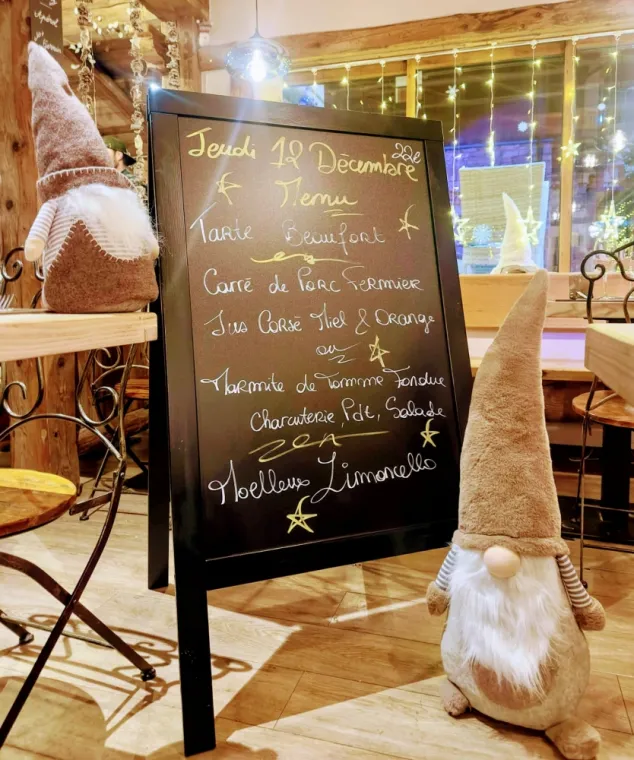 Jeudi 12 Décembre 22€
Menu
Tarte Beaufort
Carré de Porc Fermier
Jus Corsé Miel & Orange
ou
Marmite de Tomme Fondue
Charcuterie, Pdt, Salade
Moelleux Limoncello